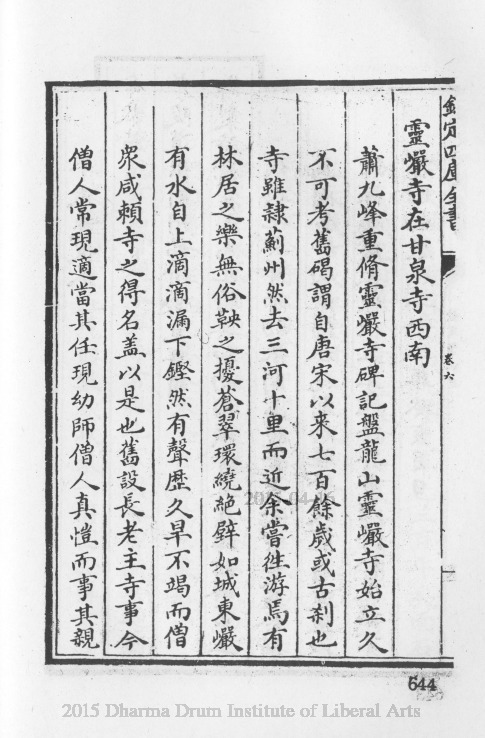 欽定四庫全書
卷六
靈巖寺在甘泉寺西南
蕭九峰重脩靈巖寺碑記盤龍山靈巖寺始立久
不可考舊碣謂自唐宋以來七百餘歲或古刹也
寺雖隷薊州然去三河十里而近余嘗徃游焉有
林居之樂無俗鞅之擾蒼翠環繞絶壁如城東巖
有水自上滴滴漏下鏗然有聲歴久旱不竭而僧
衆咸頼寺之得名盖以是也舊設長老主寺事今
僧人常現適當其任現幼師僧人真愷而事其親
644
2015 Dharma Drum Institute of Liberal Arts